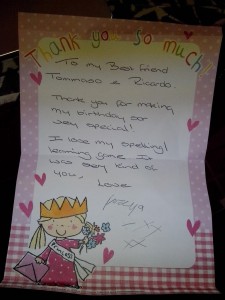 Thank you so much
To my Best friend
Tommaso e Ricardo.
Thank you for making
my birthday so
very special!
I love my spelling/
learning game. It
was very kind of
you,
Love
xx
xx